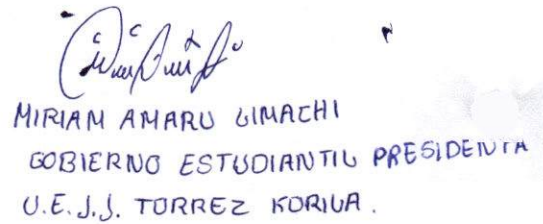 MIRIAM AMARU LIMACHI
GOBIERNO ESTUDIANTIL PRESIDENTA
U.E.J.J. TORREZ KORILA.